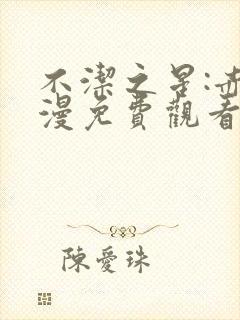 不潔之星:赤
漫免費觀看
陳愛珠